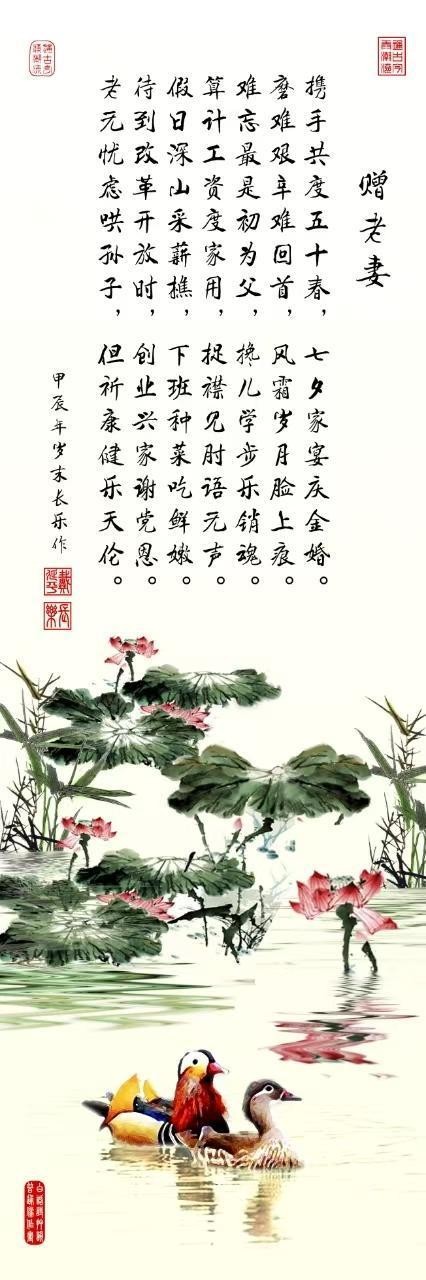 赠老妻
携手共度五十春，七夕家宴庆金婚。
磨难艰辛难回首，风霜岁月脸上痕。
难忘最是初为父，搀儿学步乐销魂。
算计工资度家用，捉襟见肘语无声。
假日深山采薪樵，下班种菜吃鲜嫩。
待到改革开放时，创业兴家谢党恩。
老无忧虑哄孙子，但祈康健乐天伦。
甲辰年岁末长乐作
長樂